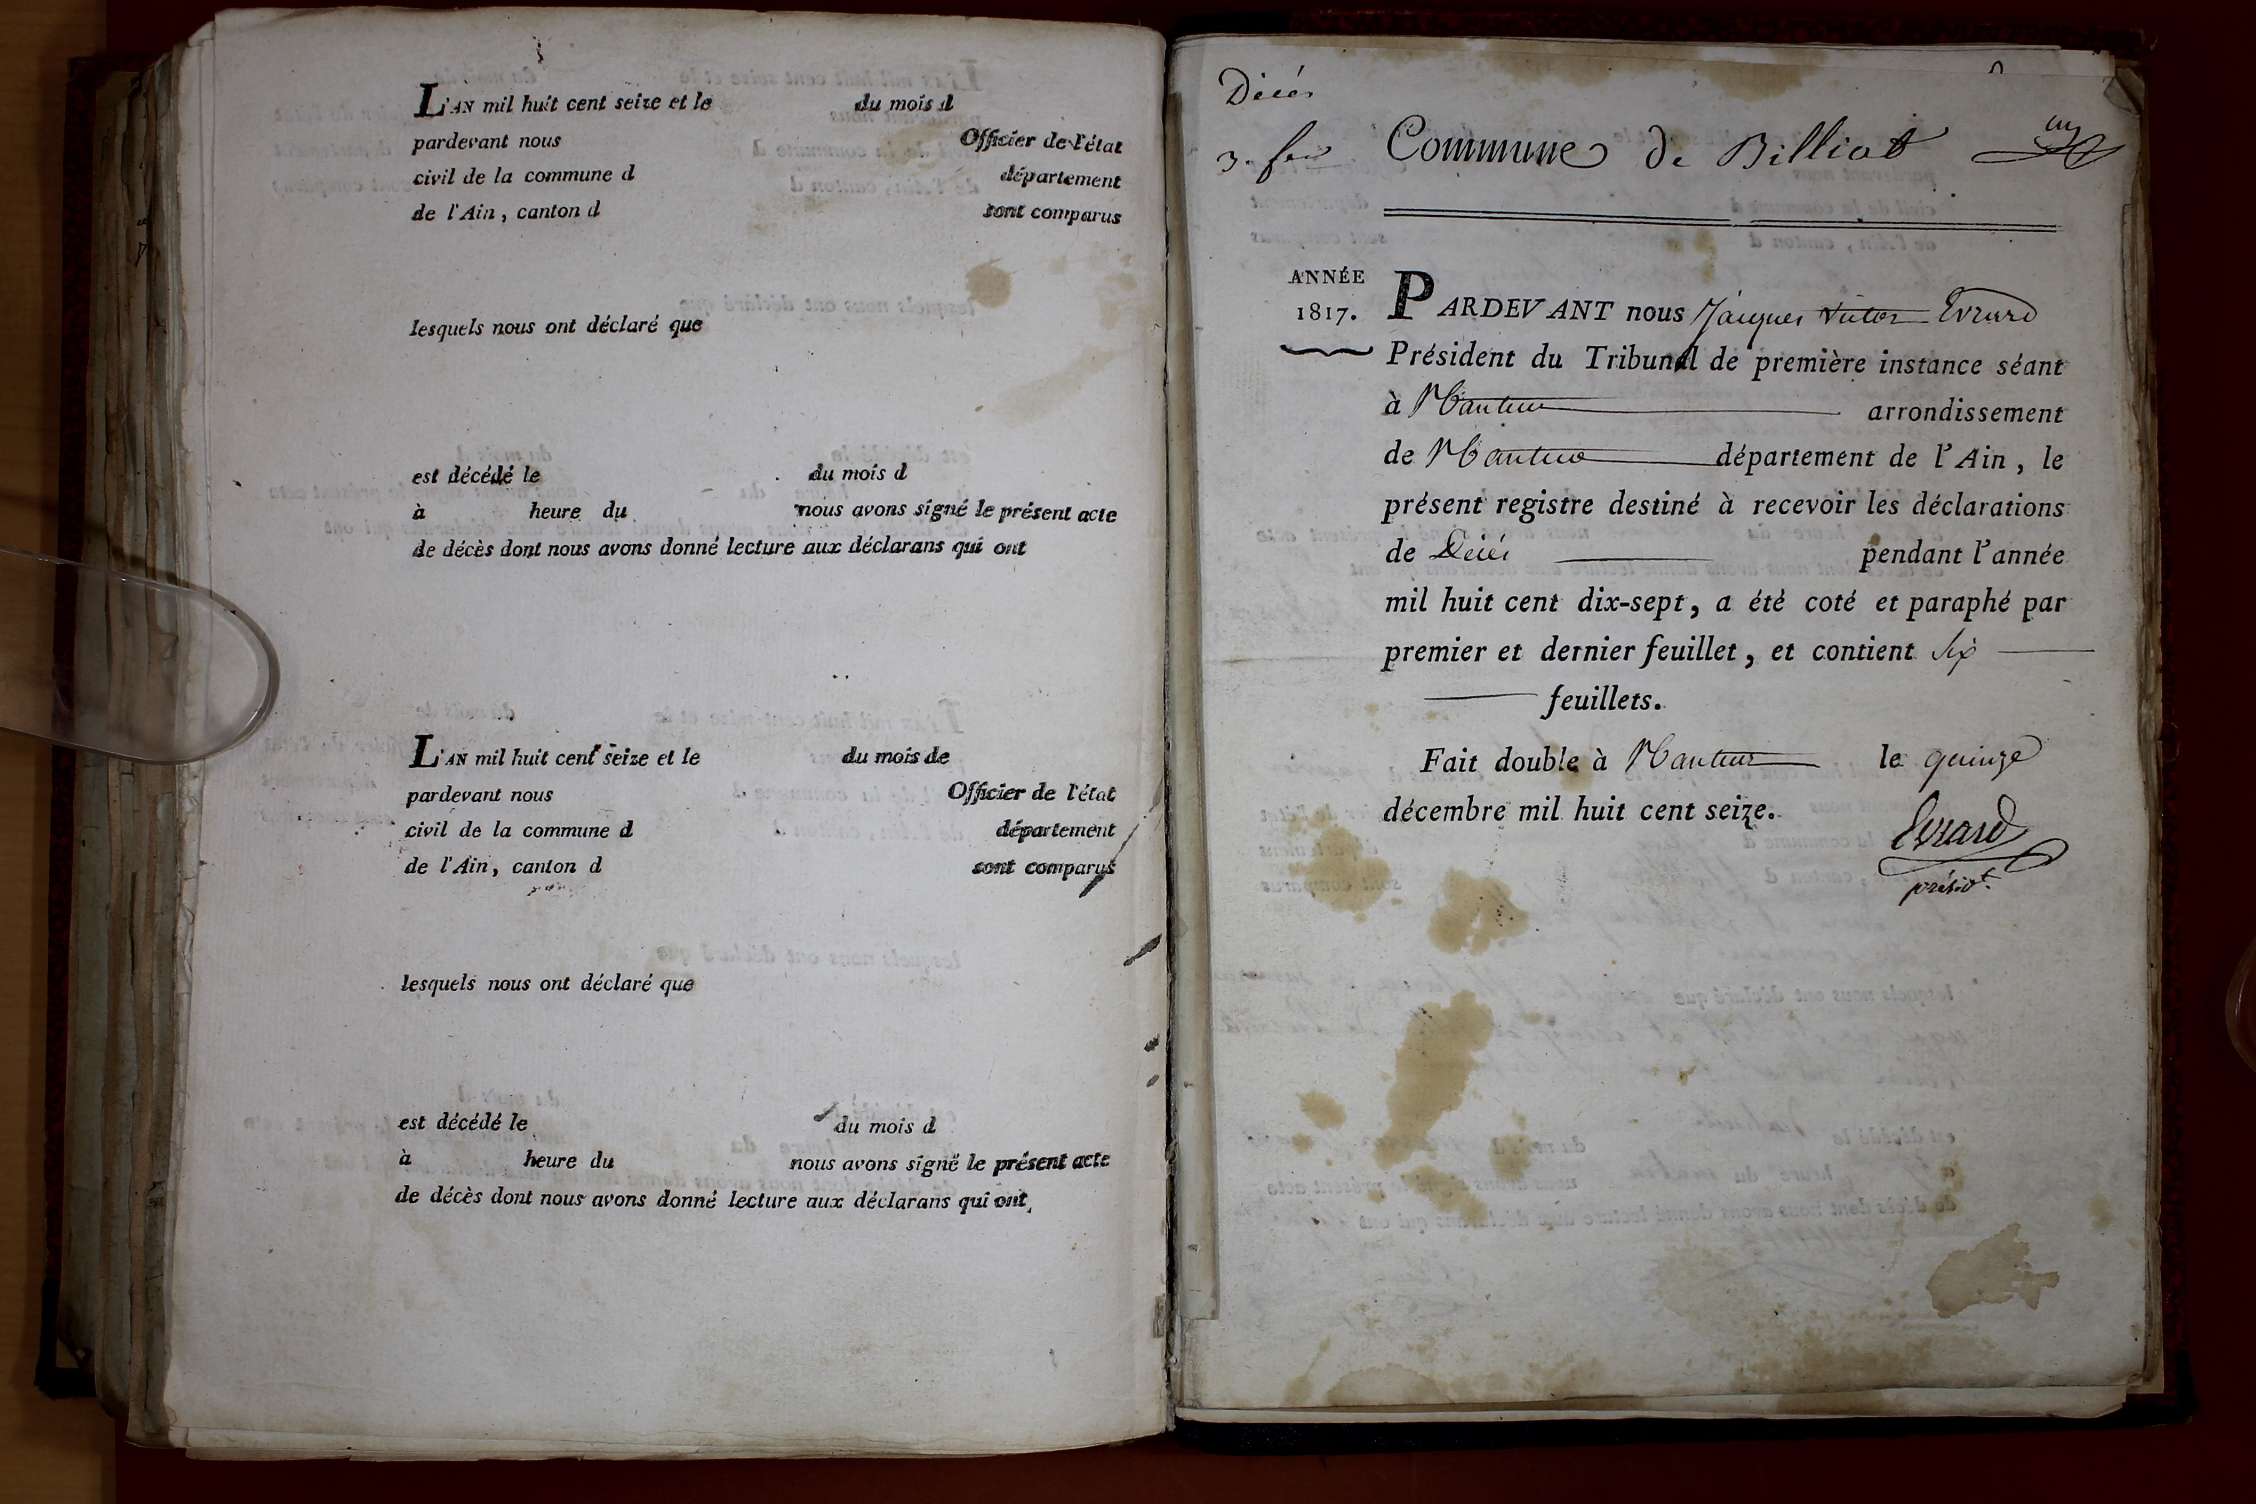 L'AN mil huit cent seize et le du mois d
pardevant nous Officier de l'état
civil de la commune d département
de l'Ain, canton d sont comparus
lesquels nous ont déclaré que
est décédé le du mois d
à heure du nous avons signé le présent acte
de décès dont nous avons donné lecture aux déclarans qui ont
L'AN mil huit cent seize et le du mois de
pardevant nous Officier de l'état
civil de la commune d département
de l'Ain, canton d sont comparus
lesquels nous ont déclaré que
est décédé le du mois d
à heure du nous avons signé le présent acte
de décès dont nous avons donné lecture aux déclarans qui ont
Décés
3.
Commune de Billiat
ANNÉE
1817.
PARDEVANT nous Jacques Victor Evrard
Président du Tribunal de première instance séant
à Nantua arrondissement
de Nantua département de l'Ain, le
présent registre destiné à recevoir les déclarations
de Décés pendant l'année
mil huit cent dix-sept, a été coté et paraphé par
premier et dernier feuillet, et contient six
feuillets.
Fait double à Nantua le quinze
décembre mil huit cent seize.
Evrard
présidt.